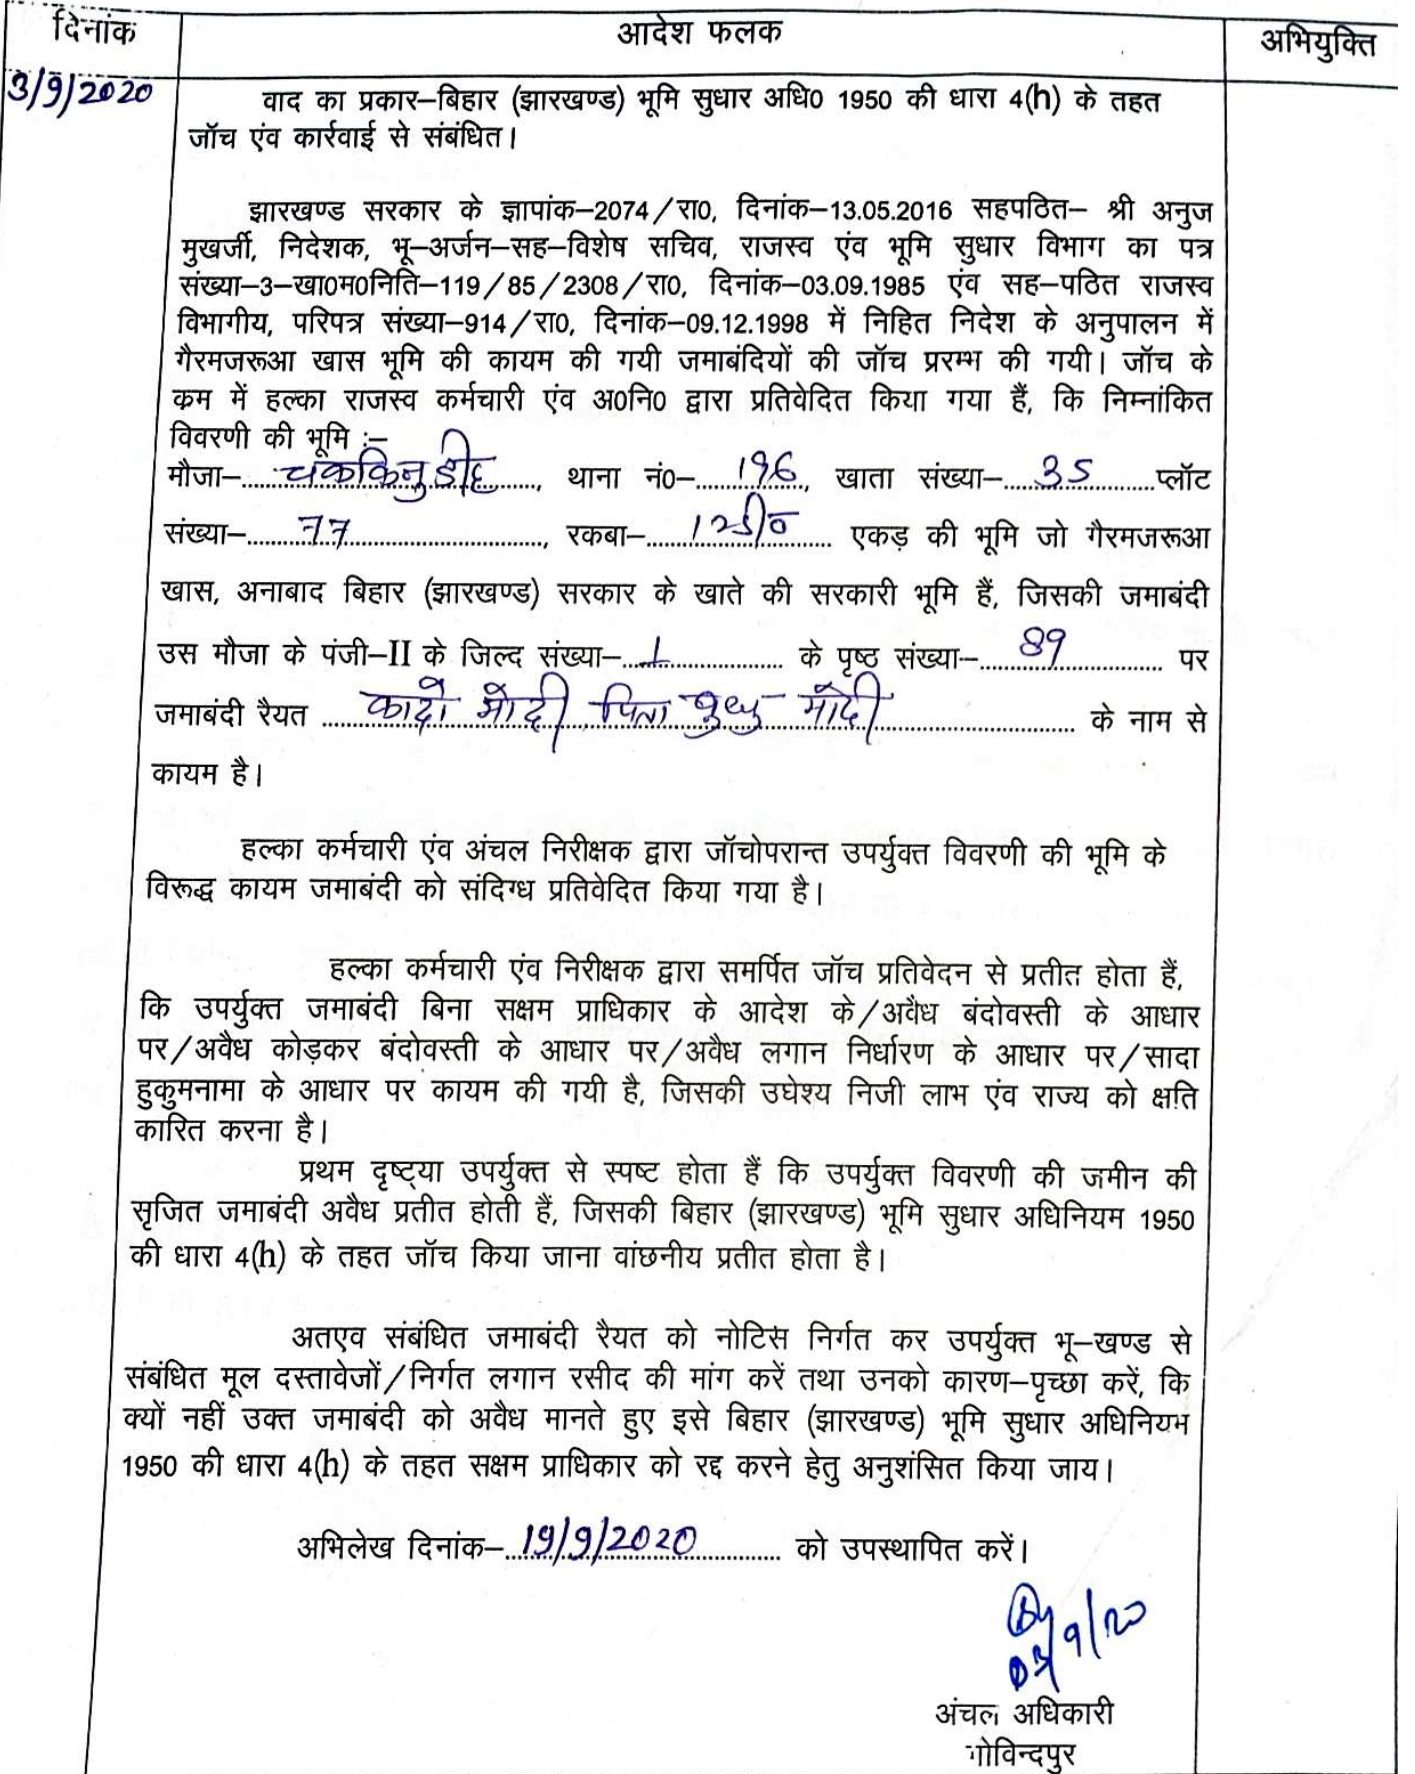 दिनांक आदेश फलक अभियुक्ति
3/9/2020
वाद का प्रकार–बिहार (झारखण्ड) भूमि सुधार अधि0 1950 की धारा 4(h) के तहत
जॉच एंव कार्रवाई से संबंधित।
झारखण्ड सरकार के ज्ञापांक–2074/रा0, दिनांक–13.05.2016 सहपठित– श्री अनुज
मुखर्जी, निदेशक, भू–अर्जन–सह–विशेष सचिव, राजस्व एंव भूमि सुधार विभाग का पत्र
संख्या–3–खा0म0निति–119/85/2308/रा0, दिनांक–03.09.1985 एंव सह–पठित राजस्व
विभागीय, परिपत्र संख्या–914/रा0, दिनांक–09.12.1998 में निहित निदेश के अनुपालन में
गैरमजरूआ खास भूमि की कायम की गयी जमाबंदियों की जॉच प्ररम्भ की गयी। जॉच के
कम में हल्का राजस्व कर्मचारी एंव अ0नि0 द्वारा प्रतिवेदित किया गया हैं, कि निम्नांकित
विवरणी की भूमि :–
मौजा–चककिनुडीह, थाना नं0–196, खाता संख्या–35 प्लॉट
संख्या–77, रकबा– एकड़ की भूमि जो गैरमजरूआ
खास, अनाबाद बिहार (झारखण्ड) सरकार के खाते की सरकारी भूमि हैं, जिसकी जमाबंदी
उस मौजा के पंजी–II के जिल्द संख्या–1 के पृष्ठ संख्या–89 पर
जमाबंदी रैयत कादो मोदी पिता बुधु मोदी के नाम से
कायम है।
हल्का कर्मचारी एंव अंचल निरीक्षक द्वारा जॉचोपरान्त उपर्युक्त विवरणी की भूमि के
विरूद्ध कायम जमाबंदी को संदिग्ध प्रतिवेदित किया गया है।
हल्का कर्मचारी एंव निरीक्षक द्वारा समर्पित जॉच प्रतिवेदन से प्रतीत होता हैं,
कि उपर्युक्त जमाबंदी बिना सक्षम प्राधिकार के आदेश के/अवैध बंदोवस्ती के आधार
पर/अवैध कोड़कर बंदोवस्ती के आधार पर/अवैध लगान निर्धारण के आधार पर/सादा
हुकुमनामा के आधार पर कायम की गयी है, जिसकी उघेश्य निजी लाभ एंव राज्य को क्षति
कारित करना है।
प्रथम दृष्ट्या उपर्युक्त से स्पष्ट होता हैं कि उपर्युक्त विवरणी की जमीन की
सृजित जमाबंदी अवैध प्रतीत होती हैं, जिसकी बिहार (झारखण्ड) भूमि सुधार अधिनियम 1950
की धारा 4(h) के तहत जॉच किया जाना वांछनीय प्रतीत होता है।
अतएव संबंधित जमाबंदी रैयत को नोटिस निर्गत कर उपर्युक्त भू–खण्ड से
संबंधित मूल दस्तावेजों/निर्गत लगान रसीद की मांग करें तथा उनको कारण–पृच्छा करें, कि
क्यों नहीं उक्त जमाबंदी को अवैध मानते हुए इसे बिहार (झारखण्ड) भूमि सुधार अधिनियम
1950 की धारा 4(h) के तहत सक्षम प्राधिकार को रद्द करने हेतु अनुशंसित किया जाय।
अभिलेख दिनांक–19/9/2020 को उपस्थापित करें।
अंचल अधिकारी
गोविन्दपुर